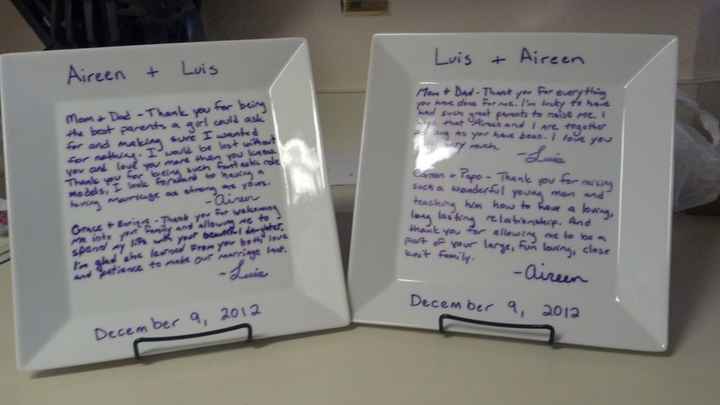 Aireen + Luis
Mom + Dad - Thank you for being
the best parents a girl could ask
for and making sure I wanted
for nothing. I would be lost without
you and love you more than you know.
Thank you for being such fantastic role
models, I look forward to having a
loving marriage as strong as yours.
- Aireen
Grace + Enrique - Thank you for welcoming
me into your family and allowing me to
spend my life with your beautiful daughter.
I'm glad she learned from you both love
and patience to make our marriage last.
- Luis
December 9, 2012
Luis + Aireen
Mom + Dad - Thank you for everything
you have done for me. I'm lucky to have
had such great parents to raise me. I
that Aireen and I are together
as long as you have been. I love you
very much.
- Luis
Carmen + Papo - Thank you for raising
such a wonderful young man and
teaching him how to have a loving,
long lasting relationship. And
thank you for allowing me to be a
part of your large, fun loving, close
knit family.
- Aireen
December 9, 2012